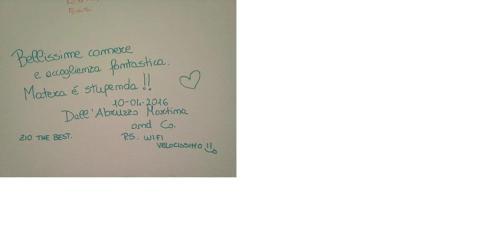 Bellissime camere
e accoglienza fantastica.
Matera é stupenda!!
10-01-2016
Dall'Abruzzo Martina
and Co.
ZIO THE BEST. P.S. WIFI
VELOCISSIMO!!